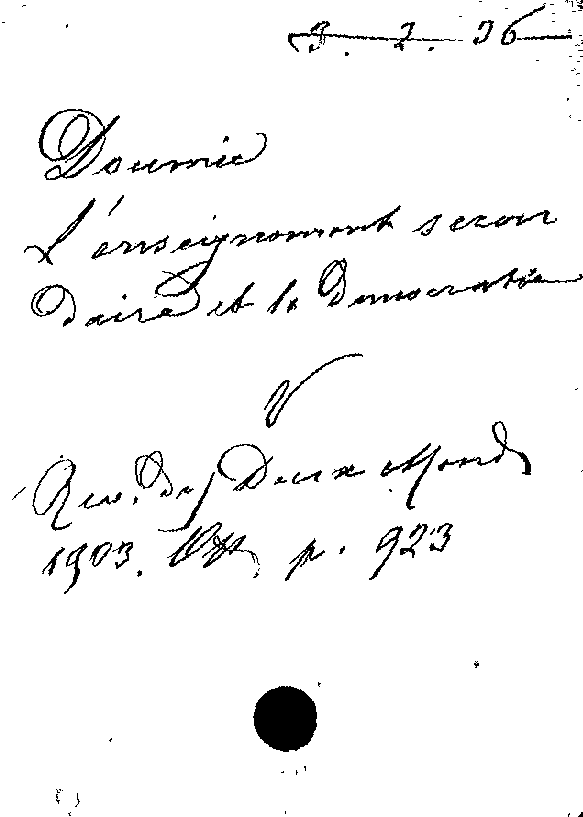 3. 2. 36
Doumic
L'enseignement secon
daire et la Démocratie
V
Rev. des Deux Mond
1903. p. 923